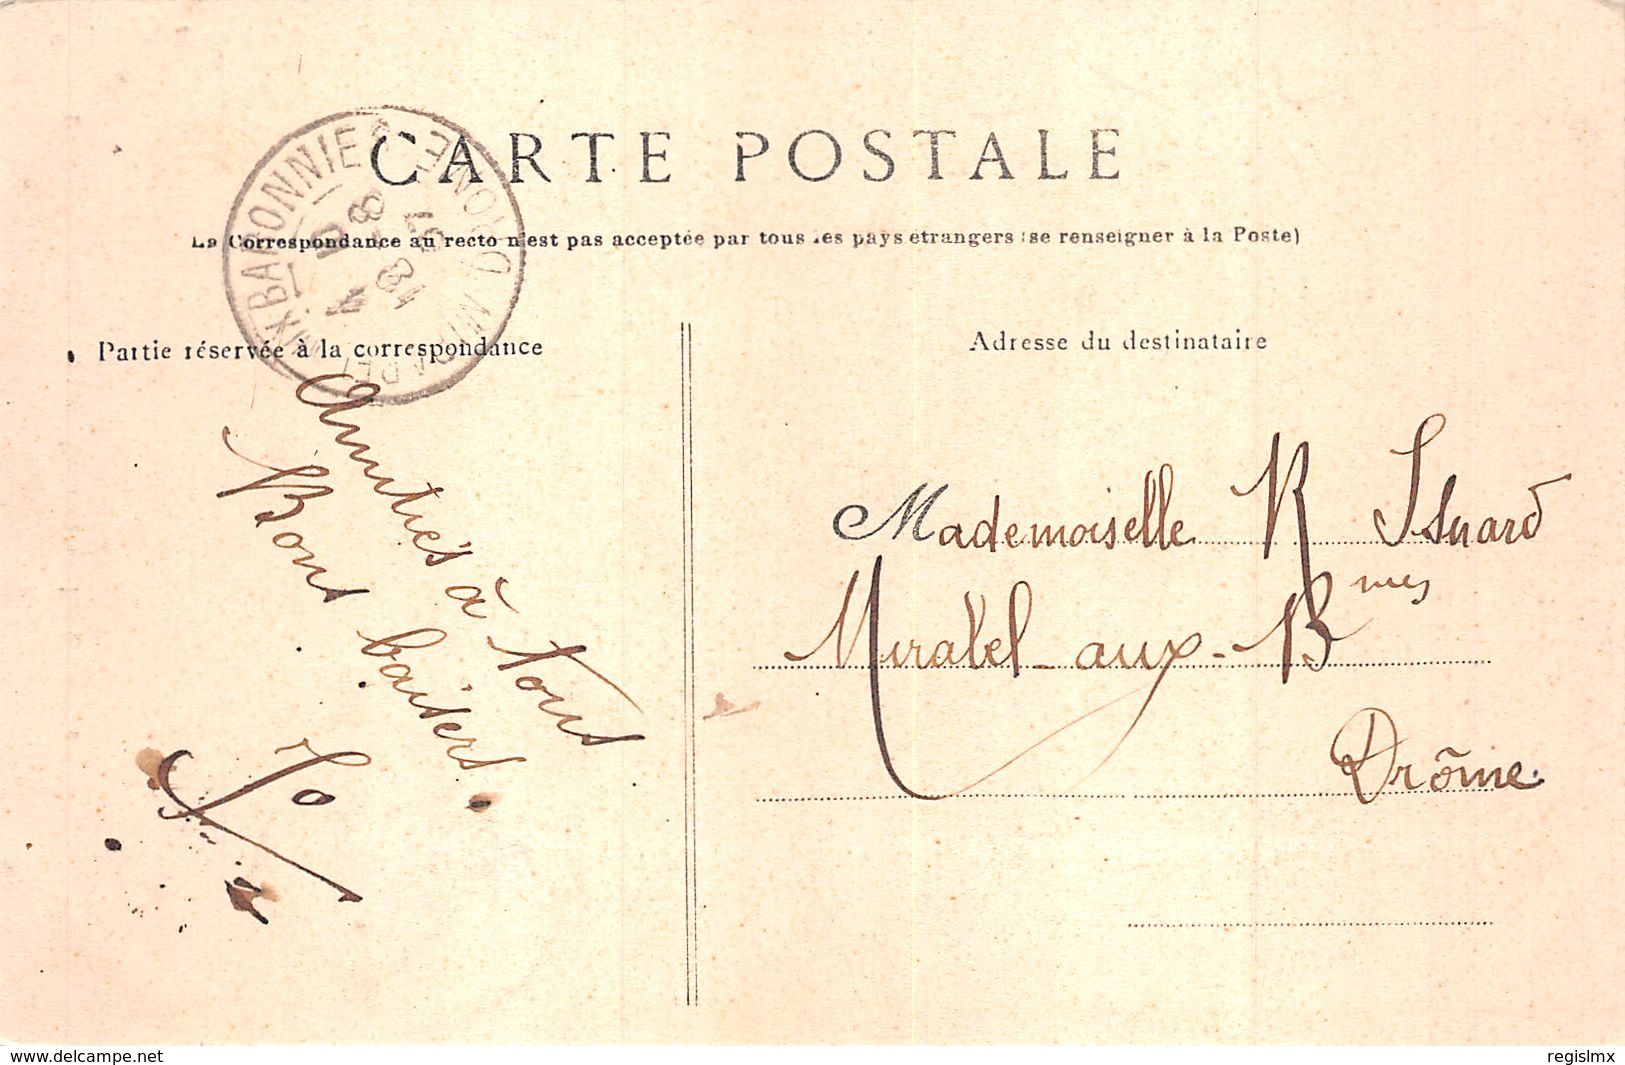 CARTE POSTALE
La Correspondance au recto n'est pas acceptée par tous les pays étrangers (se renseigner à la Poste)
Partie réservée à la correspondance
Adresse du destinataire
MIRABEL AUX BARONNIES DROME
18 8
4
Amitiés à tous
Bons baisers
Mademoiselle R Isnard
Mirabel-aux-Bnies
Drôme
www.delcampe.net
regislmx